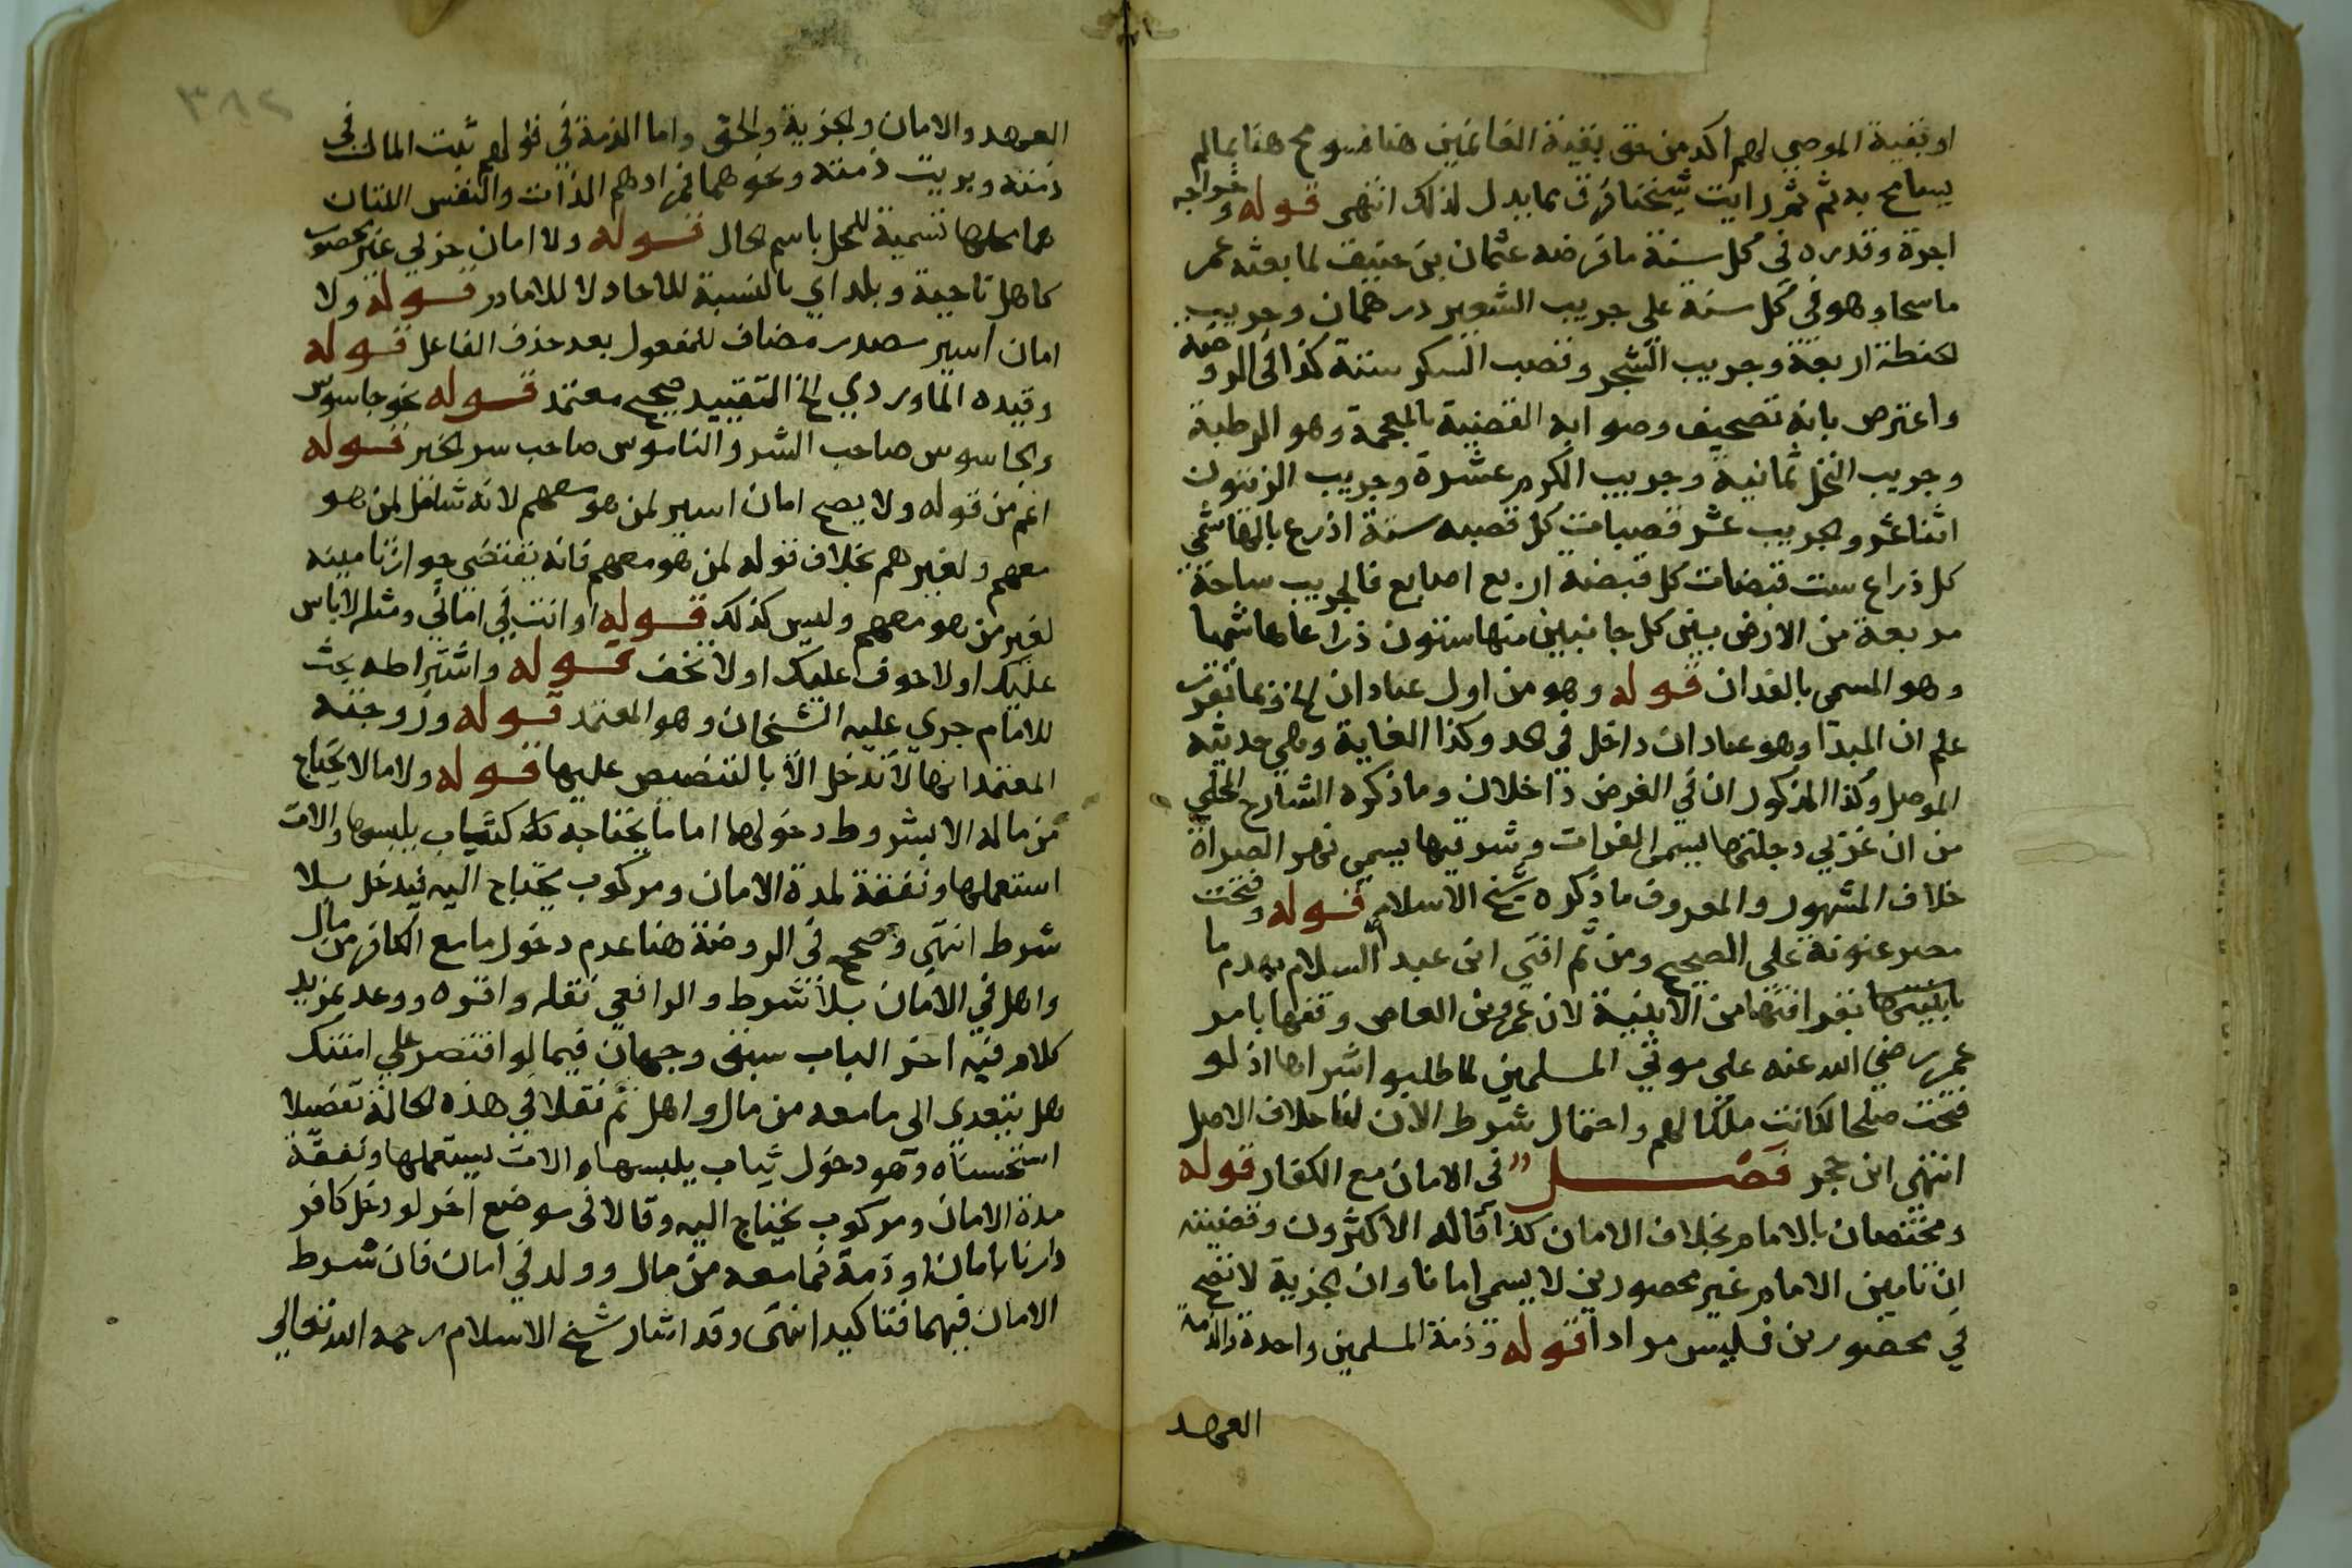 او بقية الموصي لهم آكد من حق بقية الغانمين هنا فسومح هنا بما لم
يسامح به ثم ثم رايت شيخنا فرق بما يدل لذلك انتهى قوله وخراجه
اجرة وقدره في كل سنة ما فرضه عثمان بن حنيف لما بعثه عمر
ماسحا وهو في كل سنة على جريب الشعير درهمان وجريب
الحنطة اربعة وجريب الشجر وقصب السكر ستة كذا في الروضة
واعترض بانه تصحيف وصوابه القضبة بالمعجمة وهو الرطبة
وجريب النخل ثمانية وجريب الكرم عشرة وجريب الزيتون
اثنا عشر والجريب عشر قصبات كل قصبه ستة اذرع بالهاشمي
كل ذراع ست قبضات كل قبضة اربع اصابع فالجريب ساحة
مربعة من الارض بين كل جانبين منها ستون ذراعا هاشميا
وهو المسمى بالفدان قوله وهو من اول عبادان الخ وبما تقرر
علم ان المبدأ وهو عبادان داخل في الحد وكذا الغاية وهي حديثه
الموصل وكذا المذكوران في العرض داخلان وما ذكره الشارح المحلي
من ان غربي دجلتها يسمى الفرات وشرقيها يسمى نهر الصراة
خلاف المشهور والمعروف ما ذكره شيخ الاسلام قوله وفتحت
مصر عنوة على الصحيح ومن ثم افتى ابن عبد السلام بهدم ما
بابنيتها بقرافتها من الابنية لان عمرو بن العاص وقفها بامر
عمر رضي الله عنه على موتى المسلمين لما طلبوا اشراها اذ لو
فتحت صلحا لكانت ملكا لهم واحتمال شرط الارض لنا خلاف الاصل
انتهى ابن حجر فصل في الامان مع الكفار قوله
ومختصان بالامام بخلاف الامان كذا قاله الاكثرون وقضيته
ان تامين الامام غير محصورين لا يسمى امانا وان الجزية لا تصح
في محصورين فليس مرادا قوله وذمة المسلمين واحدة والذمة
العهد
٣٨٢
العهد والامان والجزية والحق واما الذمة في قولهم ثبت المال في
ذمته وبريت ذمته ونحوهما فمرادهم الذات والنفس اللتان
هما محلها تسمية للمحل باسم الحال قوله ولا امان حربي غير محصور
كاهل ناحية وبلد اي بالنسبة للآحاد لا للامام قوله ولا
امان اسير مصدر مضاف للمفعول بعد حذف الفاعل قوله
وقيده الماوردي الخ التقييد صحيح معتمد قوله نحو جاسوس
والجاسوس صاحب الشر والناموس صاحب سر الخير قوله
اعم من قوله ولا يصح امان اسير لمن هو معهم لانه شامل لمن هو
معهم ولغيرهم بخلاف قوله لمن هو معهم فانه يقتضي جواز تامينه
لغير من هو معهم وليس كذلك قوله او انت في اماني ومثله لا باس
عليك او لا خوف عليك او لا تخف قوله واشتراطه بحث
للامام جرى عليه الشيخان وهو المعتمد قوله وزوجته
المعتمد انها لا تدخل الا بالتنصيص عليها قوله ولا ما لا يحتاج
من ماله الا بشروط دخولها اما ما يحتاجه كثياب يلبسها والات
استعملها ونفقة لمدة الامان ومركوب يحتاج اليه فيدخل بلا
شرط انتهى وصحح في الروضة هنا عدم دخول ما مع الكافر من مال
واهل في الامان بلا شرط والرافعي نقله واقره ووعد بمزيد
كلام فيه اخر الباب سبق وجهان فيما لو اقتصر على امنتك
هل يتعدى الى ما معه من مال واهل ثم نقلا في هذه الحالة تفصيلا
استحسناه وهو دخول ثياب يلبسها والات يستعملها ونفقة
مدة الامان ومركوب يحتاج اليه وقالا في موضع اخر لو دخل كافر
دارنا بامان او ذمة فما معه من مال وولد في امان فان شرط
الامان فيهما فتاكيد انتهى وقد اشار شيخ الاسلام رحمه الله تعالى